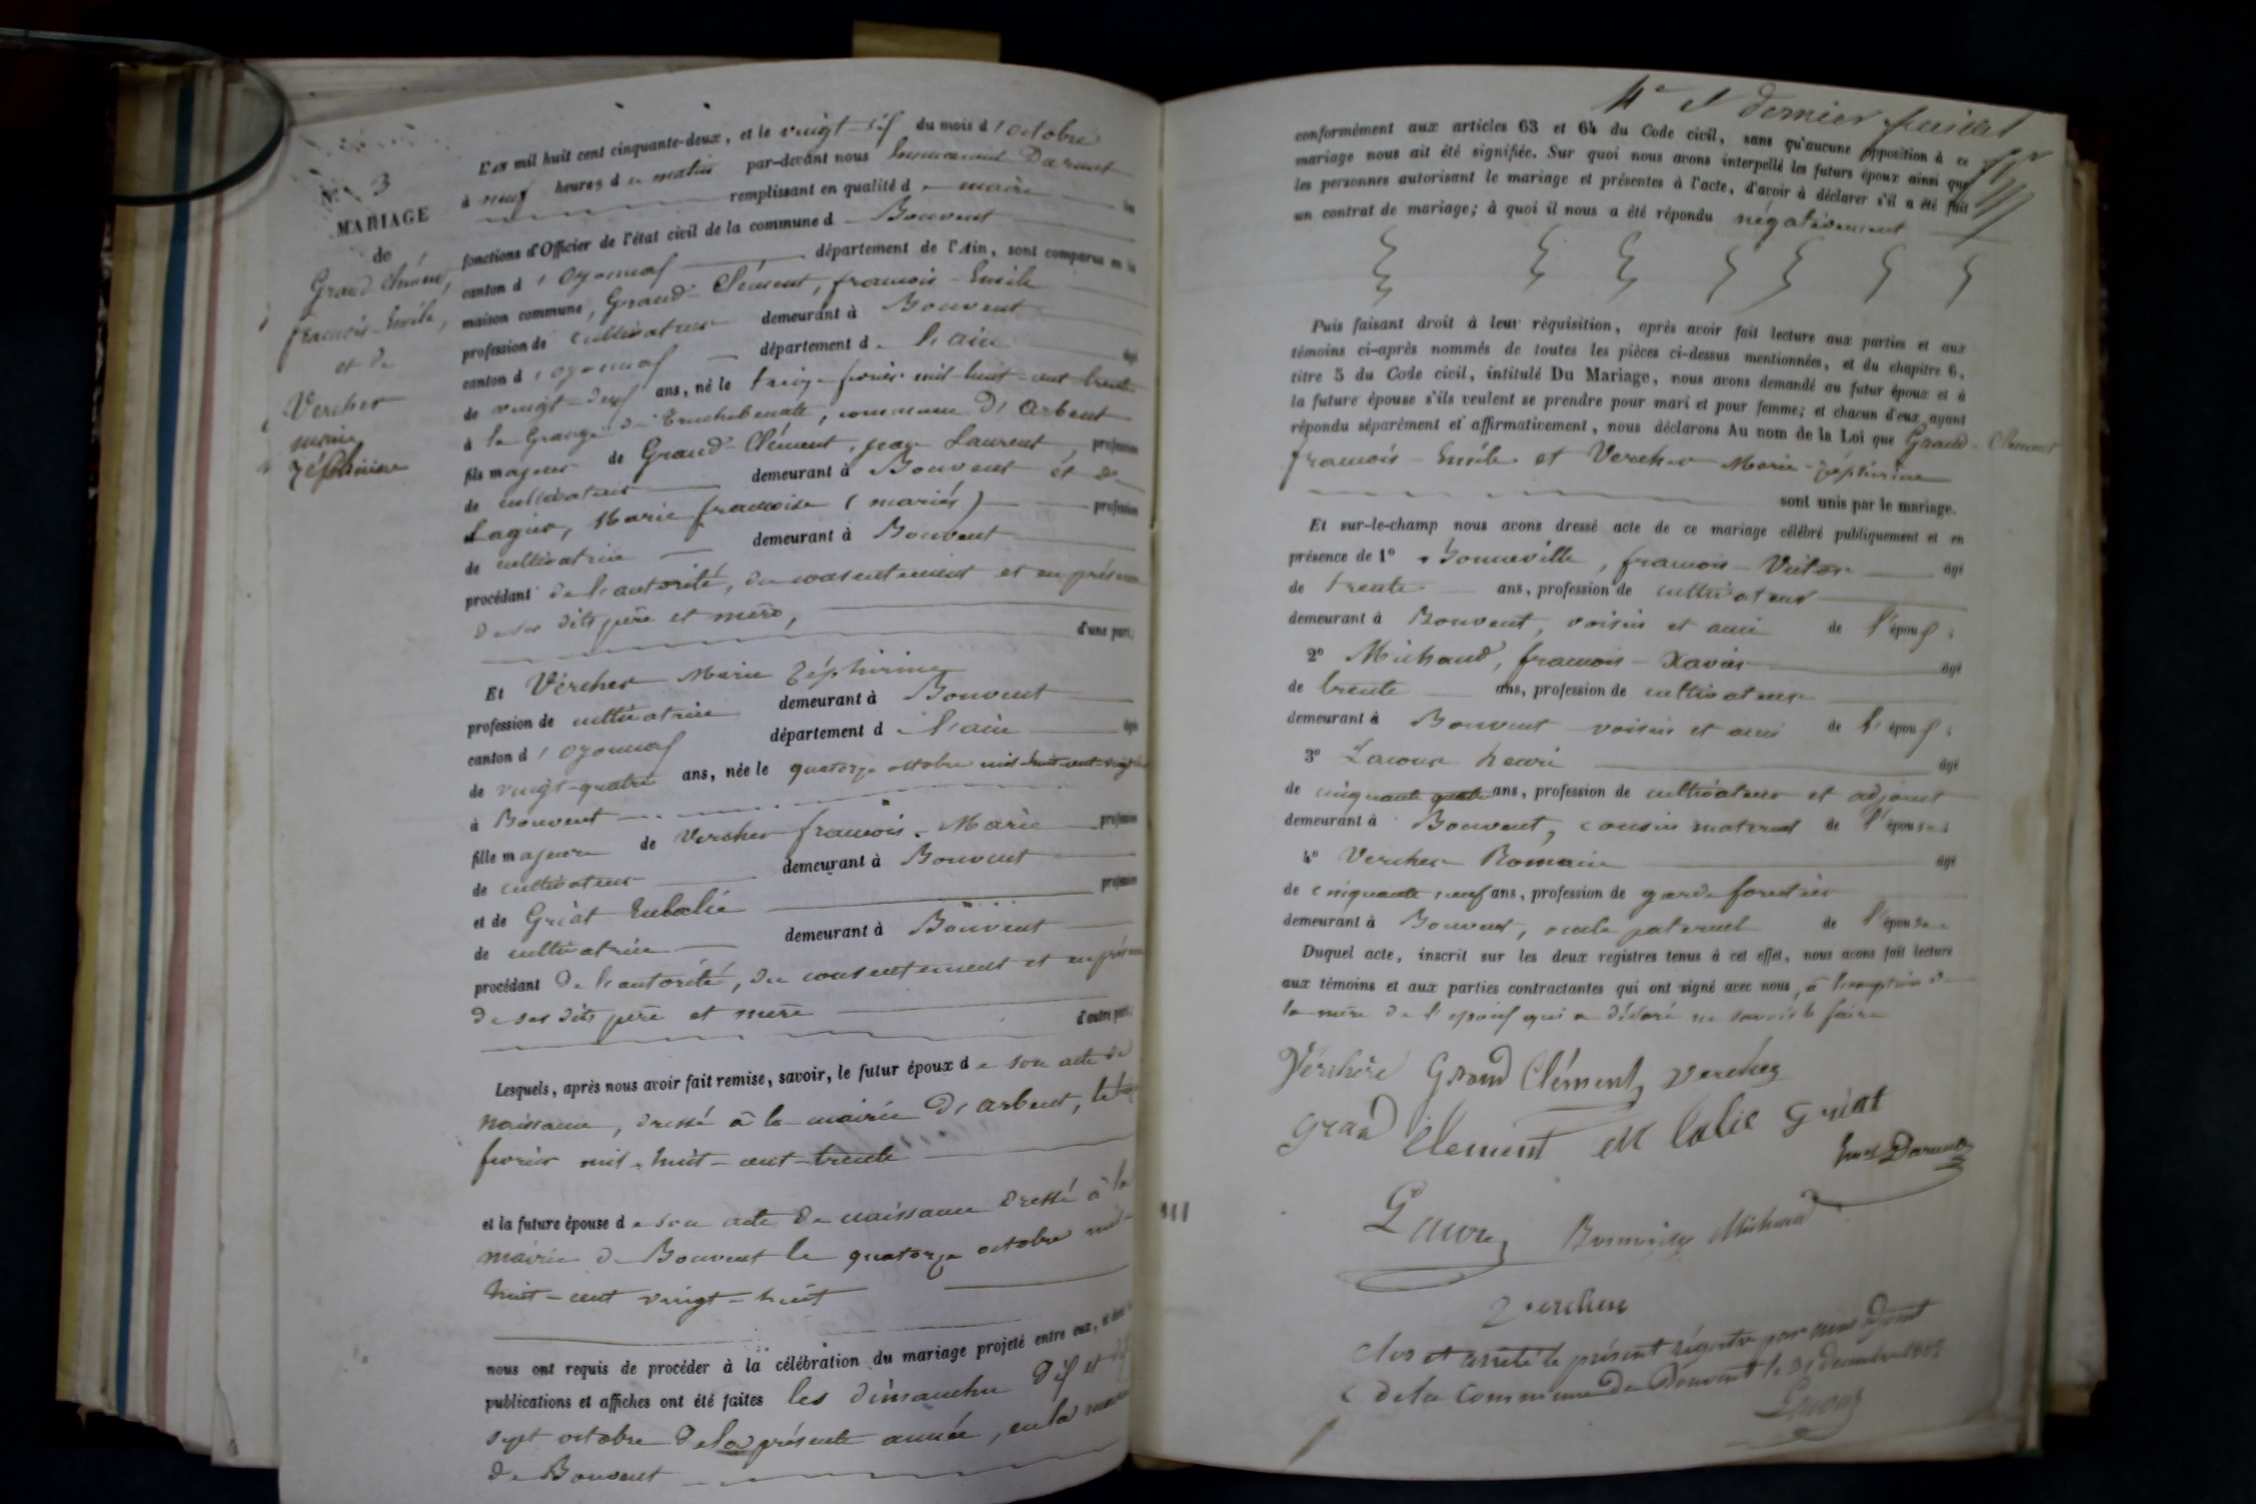 N.° 3
MARIAGE
de
Grand Clément,
françois-Emile,
et de
Vercher
marie
Zéphirine
L'an mil huit cent cinquante-deux, et le vingt-six du mois d'octobre
à neuf heures du matin par-devant nous Emmanuel Darmet
remplissant en qualité de maire les
fonctions d'Officier de l'état civil de la commune de Bouvent
canton d'oyonnax, département de l'Ain, sont comparus en la
maison commune, Grand-Clément, françois-Emile
profession de cultivateur demeurant à Bouvent
canton d'oyonnax département de l'ain âgé
de vingt-deux ans, né le treize février mil-huit-cent trente
à la Grange de, commune d'Arbent
fils majeur de Grand-Clément, Laurent, profession
de cultivateur demeurant à Bouvent et de
Lagier, Marie françoise (mariés) profession
de cultivatrice demeurant à Bouvent
procédant de l'autorité, du consentement et en présence
de ses dits père et mère,
d'une part,
Et Vercher Marie Zéphirine
profession de cultivatrice demeurant à Bouvent
canton d'oyonnax département de l'ain âgée
de vingt-quatre ans, née le quatorze octobre mil-huit-cent-vingt
à Bouvent
fille majeure de Vercher françois-Marie profession
de cultivateur demeurant à Bouvent
et de Griat Eulalie profession
de cultivatrice demeurant à Bouvent
procédant de l'autorité, du consentement et en présence
de ses dits père et mère
d'autre part,
Lesquels, après nous avoir fait remise, savoir, le futur époux de son acte de
naissance, dressé à la mairie d'arbent, le
février mil-huit-cent-trente
et la future épouse de son acte de naissance dressé à la
mairie de Bouvent le quatorze octobre mil-
huit-cent vingt-huit
nous ont requis de procéder à la célébration du mariage projeté entre eux, et dont les
publications et affiches ont été faites les dimanches dix et dix
sept octobre de la présente année, en la mairie
de Bouvent
4e et dernier feuillet
conformément aux articles 63 et 64 du Code civil, sans qu'aucune opposition à ce
mariage nous ait été signifiée. Sur quoi nous avons interpellé les futurs époux ainsi que
les personnes autorisant le mariage et présentes à l'acte, d'avoir à déclarer s'il a été fait
un contrat de mariage; à quoi il nous a été répondu négativement
Puis faisant droit à leur réquisition, après avoir fait lecture aux parties et aux
témoins ci-après nommés de toutes les pièces ci-dessus mentionnées, et du chapitre 6,
titre 5 du Code civil, intitulé Du Mariage, nous avons demandé au futur époux et à
la future épouse s'ils veulent se prendre pour mari et pour femme; et chacun d'eux ayant
répondu séparément et affirmativement, nous déclarons Au nom de la Loi que Grand-Clément
françois-Emile et Vercher Marie-Zéphirine
sont unis par le mariage.
Et sur-le-champ nous avons dressé acte de ce mariage célébré publiquement et en
présence de 1° Bonneville, françois-Victor âgé
de trente ans, profession de cultivateur
demeurant à Bouvent, voisin et ami de l'époux;
2° Michaud, françois-Xavier âgé
de trente ans, profession de cultivateur
demeurant à Bouvent voisin et ami de l'époux;
3° Lacour henri âgé
de cinquante quatre ans, profession de cultivateur et adjoint
demeurant à Bouvent, cousin maternel de l'épouse;
4° Vercher Romain âgé
de cinquante neuf ans, profession de garde forestier
demeurant à Bouvent, oncle paternel de l'épouse
Duquel acte, inscrit sur les deux registres tenus à cet effet, nous avons fait lecture
aux témoins et aux parties contractantes qui ont signé avec nous, à l'exception de
la mère de l'époux qui a déclaré ne savoir le faire
Verchere Grand Clément Vercher
Grand Clement Lalie Griat
Darmet
Lacour Bonneville Michaud
Vercher
Clos et arrêté le présent registre par nous adjoint
de la Commune de Bouvent le 31 decembre 1852
Lacour